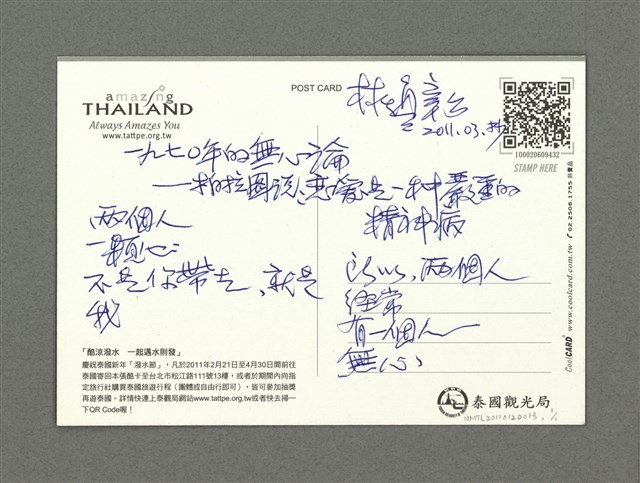 amazing
THAILAND
Always Amazes You
www.tattpe.org.tw
POST CARD
林
2011.03.
100020609432
STAMP HERE
一九七〇年的無心論
——柏拉圖說：戀愛是一种嚴重的
精神病
兩個人
一顆心
不是你帶走、就是
我
所以，兩個人
經常
有一個人
無心
「酷涼潑水　一起遇水則發」
慶祝泰國新年「潑水節」，凡於2011年2月21日至4月30日間前往
泰國寄回本張酷卡至台北市松江路111號13樓，或者於期間內向指
定旅行社購買泰國旅遊行程（團體或自由行即可），皆可參加抽獎
再遊泰國。詳情快連上泰觀局網站www.tattpe.org.tw或者快去掃一
下QR Code喔！
CoolCARD® www.coolcard.com.tw 02.2506.1755 非賣品
泰國觀光局